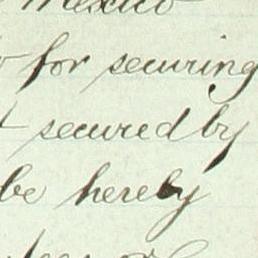 Mexico
for securing
secured by
be hereby